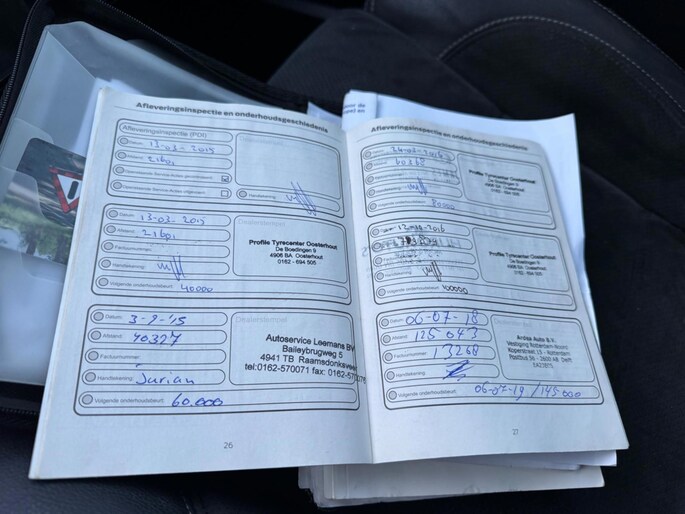 Afleveringsinspectie en onderhoudsgeschiedenis
Afleveringsinspectie (PDI)
Datum: 13-03-2015
Afstand:
Handtekening:
Datum: 13-03-2015
Afstand:
Factuurnummer:
Handtekening:
Volgende onderhoudsbeurt: 40000
Profile Tyrecenter Oosterhout
De Boedingen 9
4906 BA Oosterhout
0162 - 694 505
Datum: 3-9-'15
Afstand: 40327
Factuurnummer:
Handtekening: Jurian
Volgende onderhoudsbeurt: 60.000
Autoservice Leemans BV
Baileybrugweg 5
4941 TB Raamsdonksveer
tel:0162-570071 fax: 0162-570076
26
Afleveringsinspectie en onderhoudsgeschiedenis
80000
Profile Tyrecenter Oosterhout
De Boedingen 9
4906 BA Oosterhout
0162 - 694 505
Handtekening:
Volgende onderhoudsbeurt: 100000
Profile Tyrecenter Oosterhout
De Boedingen 9
4906 BA Oosterhout
0162 - 694 505
Datum: 06-07-18
Afstand: 125043
Factuurnummer: 13268
Handtekening:
Volgende onderhoudsbeurt: 06-07-19 / 145.000
Vestiging Rotterdam-Noord
27